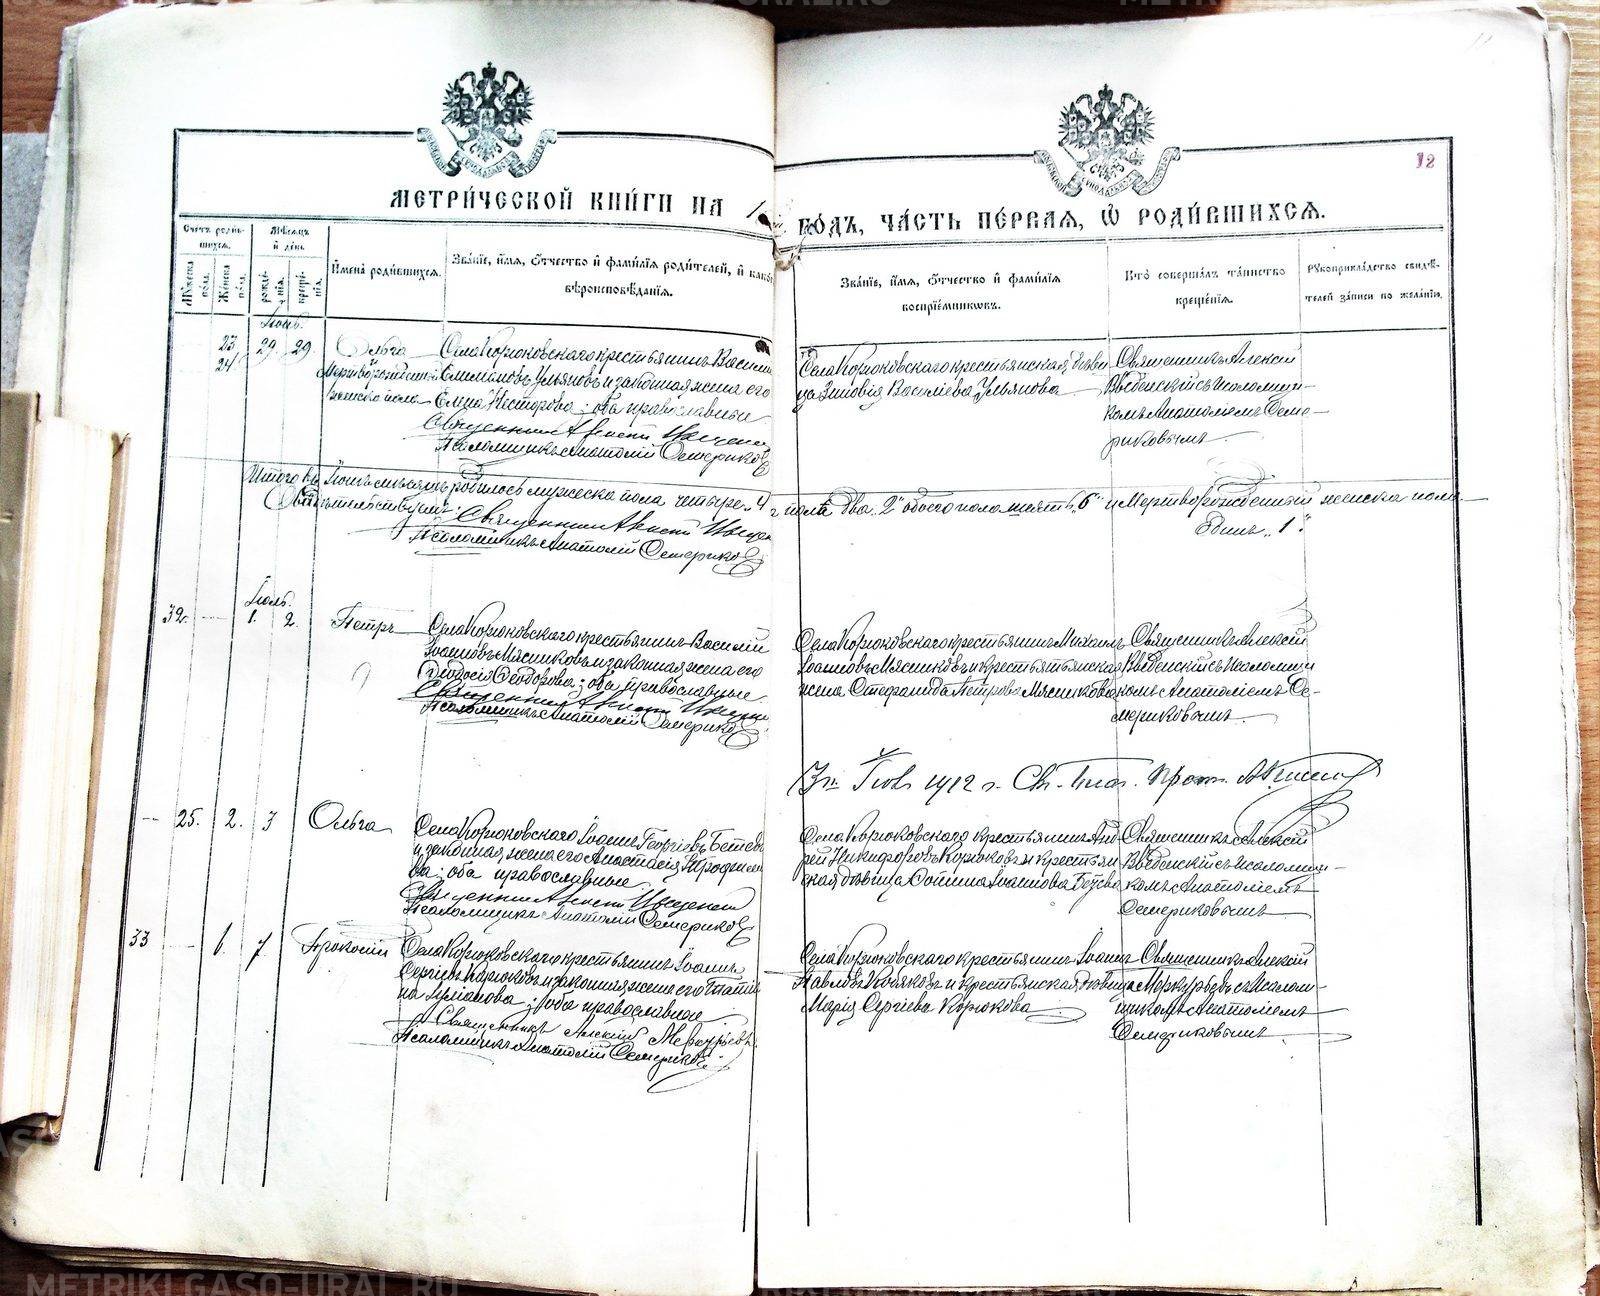 METRIKI.GASO-URAL.RU
12
МЕТРИ́ЧЕСКОЙ КНИ́ГИ НА 1
ГО́ДЪ, ЧА́СТЬ ПЕ́РВАЯ, Ѡ РОДИ́ВШИХСЯ.
Сче́тъ роди́вшихся.
Му́жеска по́ла.
Же́нска по́ла.
Мѣ́сяцъ и де́нь
рожде́нія.
креще́нія.
Имена̀ роди́вшихся.
Зва́ніе, и́мя, ѻ́тчество и фами́лія роди́телей, и како́
вѣроисповѣ́данія.
Зва́ніе, и́мя, ѻ́тчество и фами́лія
воспріе́мниковъ.
Кто̀ соверша́лъ та́инство
креще́нія.
Рукоприкла́дство свидѣ́-
телей за́писи по жела́нію.
Іюнь.
23 29. 29. Ольга
24 Мертворожденный
женска пола
Села Корюковскаго крестьянинъ Васи
Емельяновъ Ульяновъ и законная жена его
Елена Несторова; оба православные
Священник Алексей Введенский
Псаломщикъ Анатолій Семериков
Села Корюковскаго крестьянская дѣви
ца Зиновія Васильева Ульянова
Священникъ Алексій
Введенскій съ псаломщи-
комъ Анатоліемъ Семе-
риковымъ
Итого въ Іюнѣ мѣсяцѣ родилось мужеска пола четыре „4
пола два „2" обоего пола шесть „6" и Мертворожденный женска пола
Одинъ „1".
Свидѣтельствуемъ: Священник Алексей Введенс
Псаломщикъ Анатолій Семериков
Іюль.
32. 1. 2. Петръ
Села Корюковскаго крестьянинъ Василій
Іоанновъ Мясниковъ и законная жена его
Феодосія Феодорова; оба православные
Священник Алексей Введенский
Псаломщикъ Анатолій Семериков
Села Корюковскаго крестьянинъ Михаилъ
Іоанновъ Мясниковъ и крестьянская
жена Стефанида Петрова Мясникова
Священникъ Алексій
Введенскій съ псаломщи
комъ Анатоліемъ Се-
мериковымъ
1912 г.
25. 2. 3 Ольга
Села Корюковскаго Іоаннъ Георгіевъ Бетевъ
и законная жена его Анастасія Трофимо
ва; оба православные
Священник Алексей Введенский
Псаломщикъ Анатолій Семериков
Села Корюковскаго крестьянинъ Анд
рей Никифоровъ Корюковъ и крестьян
ская дѣвица Іоаннова Бетева
Священникъ Алексій
Введенскій съ псаломщи-
комъ Анатоліемъ
Семериковымъ
33 6. 7. Прокопій
Села Корюковскаго крестьянинъ Іоаннъ
Сергіевъ Корюковъ и законная жена его Татія
на; оба православные
Священникъ Алексій Меркурьевъ
Псаломщикъ Анатолій Семериков
Села Корюковскаго крестьянинъ Іоаннъ
Павловъ и крестьянская дѣвица
Марія Сергіева Корюкова
Священникъ Алексій
Меркурьевъ съ псалом-
щикомъ Анатоліемъ
Семериковымъ
METRIKI.GASO-URAL.RU